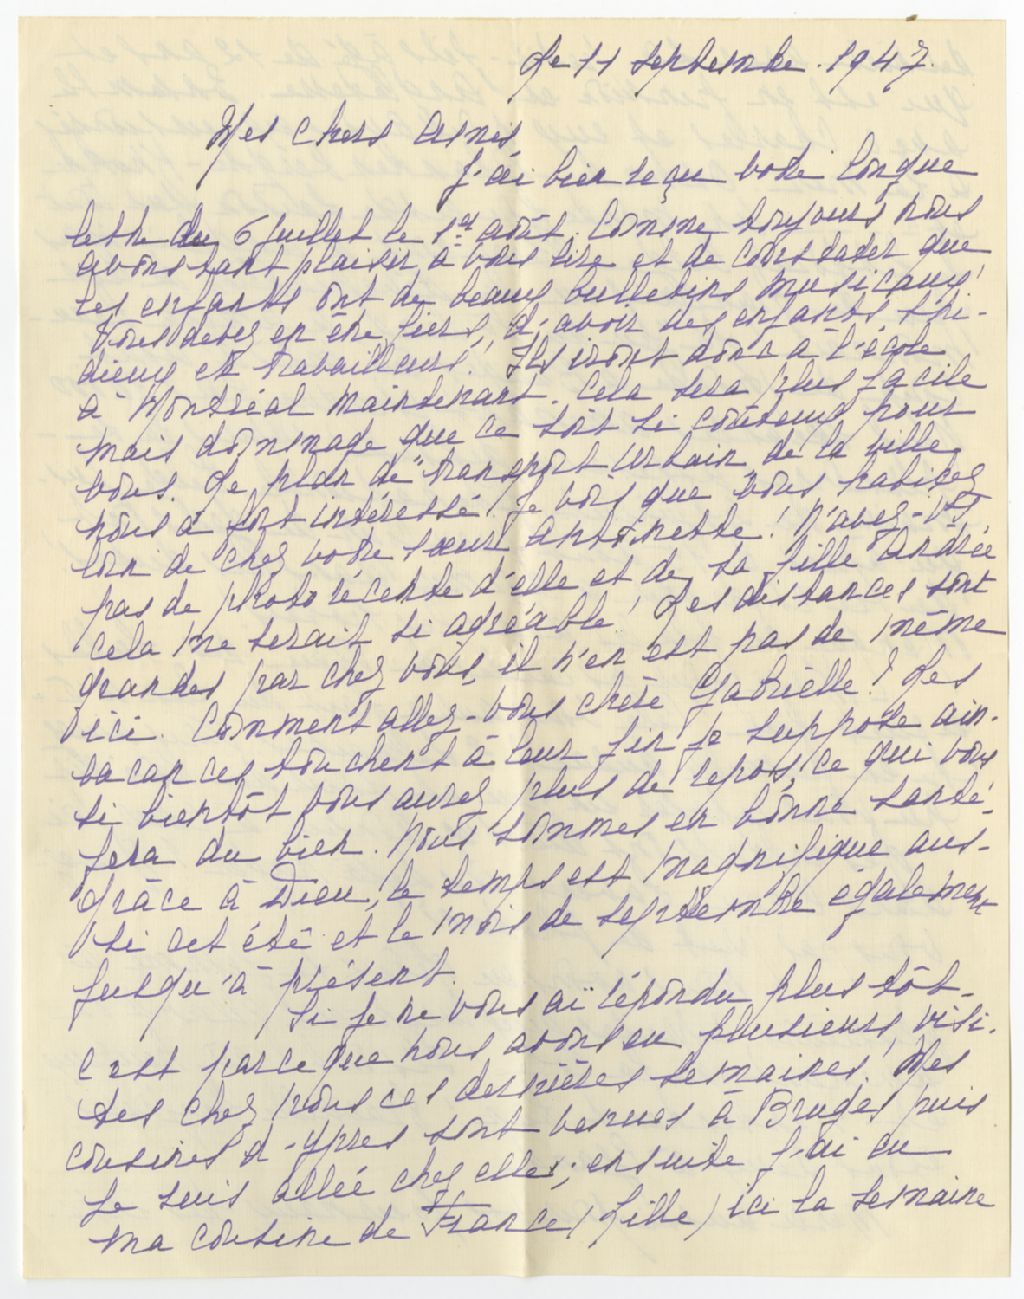 Le 11 septembre. 1947.
Mes chers Amis
J'ai bien reçu votre longue
lettre du 6 juillet le 1er août. Comme toujours nous
avons tant plaisir à vous lire et de constater que
les enfants ont de beaux bulletins musicaux!
Vous devez en être fiers, d'avoir des enfants stu-
dieux et travailleurs! Ils iront donc à l'école
à Montréal maintenant. Cela sera plus facile
mais dommage que ce soit si coûteux pour
vous. Le plan de "transport urbain de la ville
nous a fort intéressé! Je vois que vous habitez
loin de chez votre soeur Antoinette! N'avez-vs
pas de photo récente d'elle et de sa fille Andrée
cela me serait si agréable! Les distances sont
grandes par chez vous, il n'en est pas de même
d'ici. Comment allez-vous chère Gabrielle! Les
vacances touchent à leur fin je suppose ain-
si bientôt vous aurez plus de repos, ce qui vous
fera du bien. Nous sommes en bonne santé
grâce à Dieu, le temps est magnifique aus-
si cet été et le mois de septembre également
jusqu'à présent.
Si je ne vous ai répondu plus tôt-
c'est parce que nous avons eu plusieurs visi-
tes chez nous ces dernières semaines! Mes
cousines d'Ypres sont venues à Bruges puis
je suis allée chez elles; ensuite j'ai eu
ma cousine de France (Lille) ici la semaine